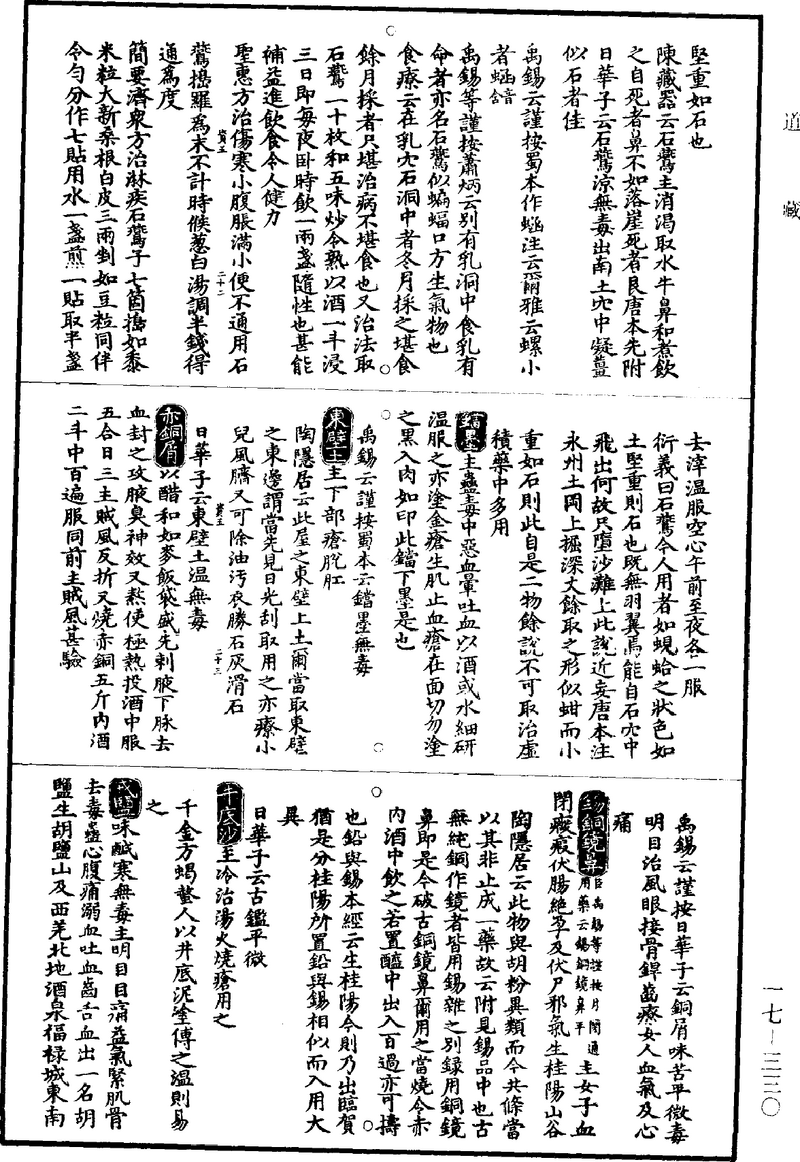 道藏
堅重如石也
陳藏器云石鷰主消渴取水牛鼻和煮飲
之自死者鼻不如落崖死者良唐本先附
日華子云石鷰涼無毒出南土穴中凝薑
似石者佳
禹錫云謹按蜀本作蝹注云爾雅云螺小
者蝹
禹錫等謹按蕭炳云別有乳洞中食乳有
命者亦名石鷰似蝙蝠口方生氣物也
食療云在乳穴石洞中者冬月採之堪食
餘月採者只堪治病不堪食也又治法取
石鷰二十枚和五味炒令熟以酒一斗浸
三日即每夜卧時飲一兩盞隨性也甚能
補益進飲食令人健力
聖惠方治傷寒小腹脹滿小便不通用石
鷰搗羅為末不計時候葱白湯調半錢得
通為度
簡要濟衆方治淋疾石鷰子七箇搗如黍
米粒大新桑根白皮三兩剉如豆粒同伴
令勻分作七貼用水一盞煎一貼取半盞
去滓温服空心午前至夜各一服
衍義曰石鷰今人用者如蜆蛤之狀色如
土堅重則石也既無羽翼焉能自石穴中
飛出何故只墮沙灘上此說近妄唐本注
永州土岡上掘深丈餘取之形似蚶而小
重如石則此自是二物餘說不可取治虛
積藥中多用
鐺墨主蠱毒中惡血暈吐血以酒或水細研
温服之亦塗金瘡生肌止血瘡在面切勿塗
之黑入肉如印此鐺下墨是也
禹錫云謹按蜀本云鐺墨無毒
東壁土主下部瘡脫肛
陶隱居云此屋之東壁上土爾當取東壁
之東邊謂當先見日光刮取用之亦療小
兒風臍又可除油汚衣勝石灰滑石
日華子云東壁土温無毒
赤銅屑以醋和如麥飯袋盛先刺腋下脉去
血封之攻腋臭神效又熬使極熱投酒中服
五合日三主賊風反折又燒赤銅五斤內酒
二斗中百遍服同前主賊風甚驗
禹錫云謹按日華子云銅屑味苦平微毒
明目治風眼接骨銲齒療女人血氣及心
痛
錫銅鏡鼻臣禹錫等謹按月閉通用藥云錫銅鏡鼻平主女子血
閉癥瘕伏腸絕孕及伏尸邪氣生桂陽山谷
陶隱居云此物與胡粉異類而今共條當
以其非止成一藥故云附見錫品中也古
無純銅作鏡者皆用錫雜之別錄用銅鏡
鼻即是今破古銅鏡鼻爾用之當燒令赤
內酒中飲之若置醯中出入百過亦可擣
也鉛與錫本經云生桂陽今則乃出臨賀
猶是分桂陽所置鉛與錫相似而入用大
異
日華子云古鑑平微
井底沙至冷治湯火燒瘡用之
千金方蝎螫人以井底泥塗傅之温則易
之
戎鹽味鹹寒無毒主明目目痛益氣緊肌骨
去毒蠱心腹痛溺血吐血齒舌血出一名胡
鹽生胡鹽山及西羌北地酒泉福祿城東南
一七—三三〇